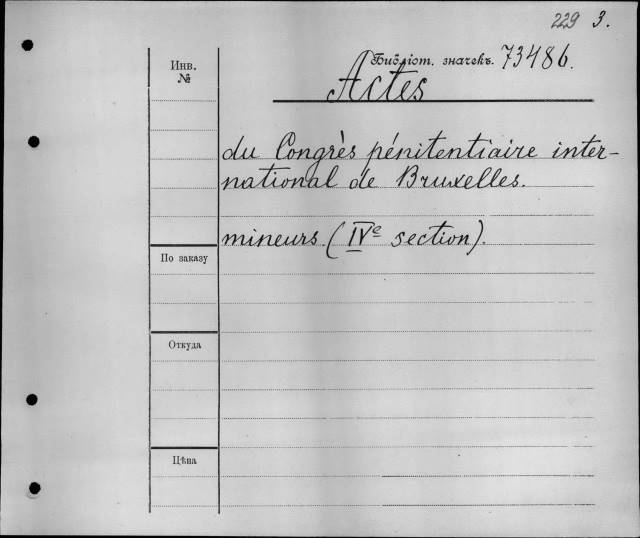 229 3.
Инв. №
Библіот. значекъ. 73486.
Actes
du Congrès pénitentiaire inter-
national de Bruxelles.
mineurs. (IVe section).
По заказу
Откуда
Цѣна